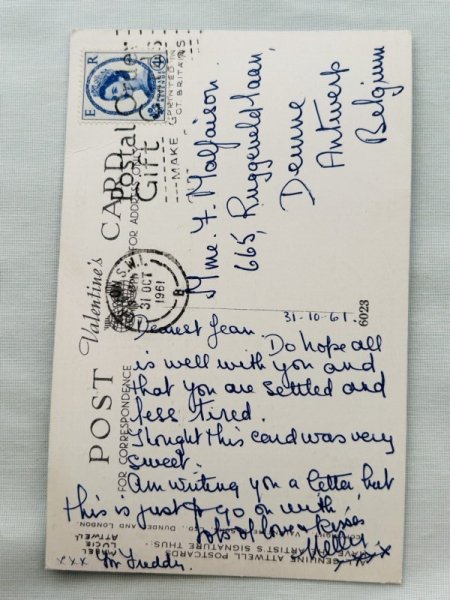 POST Valentine's CARD
FOR CORRESPONDENCE
FOR ADDRESS ONLY
PRINTED IN
GT. BRITAIN
E R
POSTAGE
REVENUE
MAKE
Postal Order
Gift
S.W.1.
31 OCT
1961
B
Mme. F. Malfaison.
665, Ruggeveldlaan,
Deurne
Antwerp
Belgium
31-10-61.
6023
Dearest Jean.
Do hope all
is well with you and
that you are settled and
less tired.
Thought this card was very
sweet.
Am writing you a letter but
this is just to go on with,
lots of love & kisses
Nelly
xxx
Freddy
xxx
GENUINE ATTWELL POSTCARDS
HAVE ARTIST'S SIGNATURE THUS:
MABEL
LUCIE
ATTWELL
LTD., DUNDEE AND LONDON.